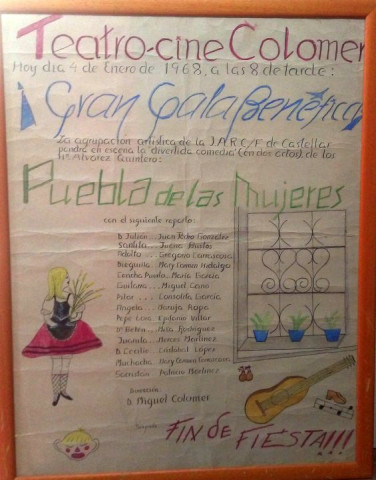 Teatro-cine Colomer
Hoy dia 4 de Enero de 1968, a las 8 de tarde:
¡Gran Gala Benéfica!
La agrupacion artistica de la J.A.R.C/F. de Castellar
pondrá en escena la divertida comedia (en dos actos) de los
Hs Alvarez Quintero:
Puebla de las Mujeres
con el siguiente reparto:
D. Julian .. Juan González
Santita ... Juana Bustos
Adolfo ... Gregorio Carrascosa
Dieguilla .. Mary Carmen
Concha Puerto .. María García
Guitarra .... Miguel Cano
Pilar .... Consolita García
Angela .... Maruja Rojo
Pepe Lora .. Epifanio Villar
Dª Belén .. Rodriguez
Juanita .. Martinez
D. Cecilio .. Cristobal López
Muchacha .. Mary Carmen Carrascosa
Sacristan .. Patricio Martinez
Dirección:
D. Miguel Colomer
FIN DE FIESTA!!!